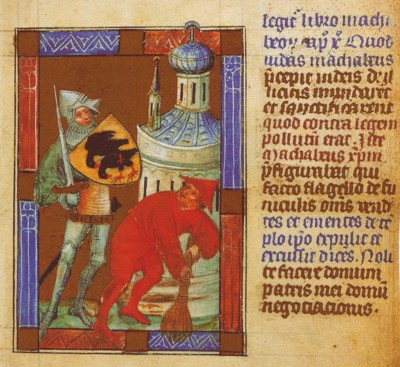 legit' libro machi
beoꝝ cap̄ x̄ Quod
iudas machabeus
p̄cepit iudeis
mundaret
et sanctificarent
quod contra legem
pollutū erat. Iste
Machabeus xp̄m
p̄figurabat qui
facto flagello de fu
niculis om̄s vend
tes et ementes de tē
plo ip̄o expulit et
excussit dicēs. Noli
te facere domum
patris mei domū
negociacionis.